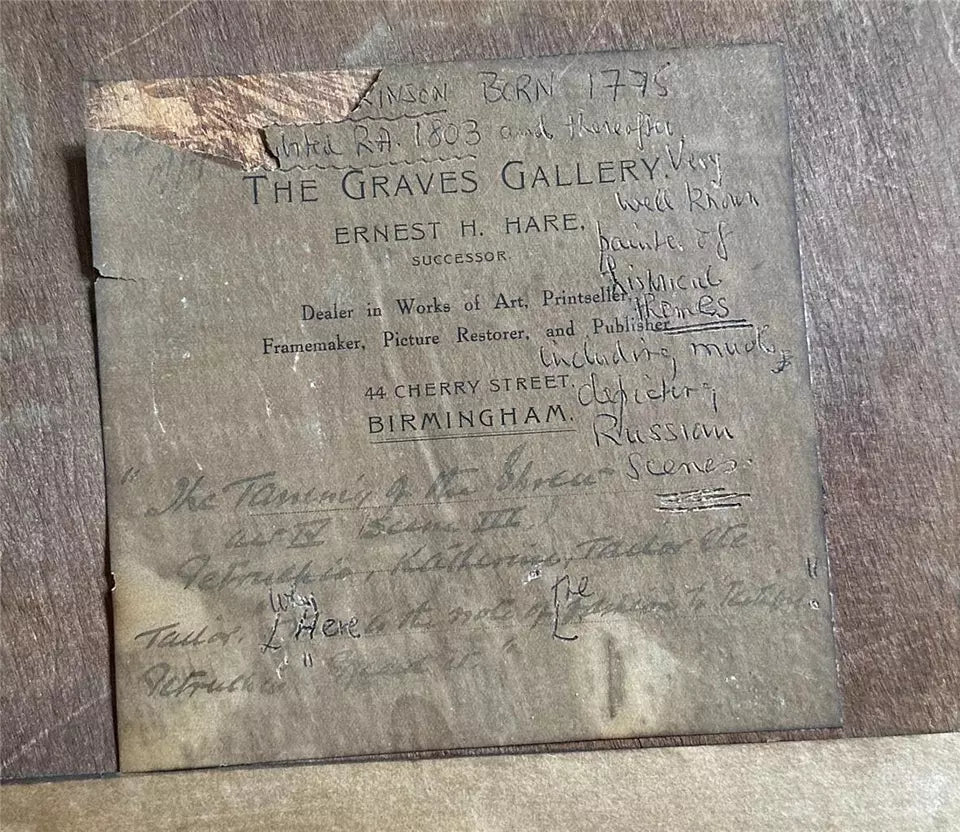 KINSON BORN 1775
R.A. 1803 and thereafter
THE GRAVES GALLERY.
Very
well known
ERNEST H. HARE,
painter of
SUCCESSOR.
historical
Dealer in Works of Art, Printseller,
themes
Framemaker, Picture Restorer, and Publisher
including much
44 CHERRY STREET.
depicting
BIRMINGHAM.
Russian
scenes.
"The Taming of the Shrew
Act IV Scene III
Petruchio, Katherine, Tailor etc
Why
the
Tailor. Here is the note of fashion to
Petruchio "Read it."